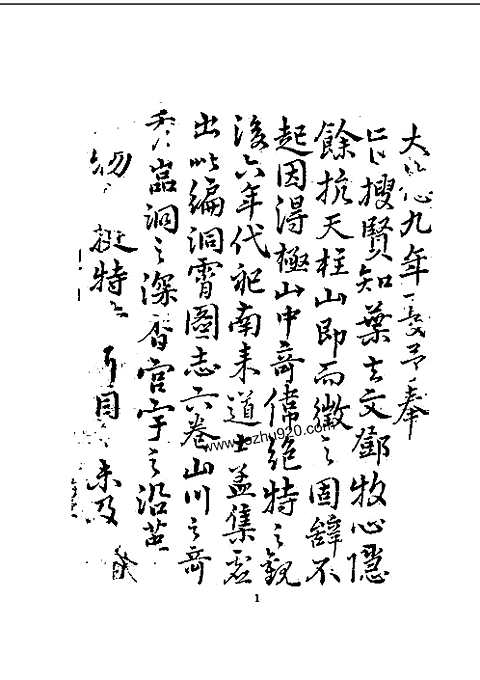 大德九年予奉
旨搜賢知葉玄文鄧牧心隱
餘杭天柱山即而徵之固辭不
起因得極山中奇偉絕特之觀
後六年代祀南来道士孟集虛
出此編洞霄圖志六卷山川之奇
秀嵒洞之深杳宮宇之沿革
挺特之耳目未及
1